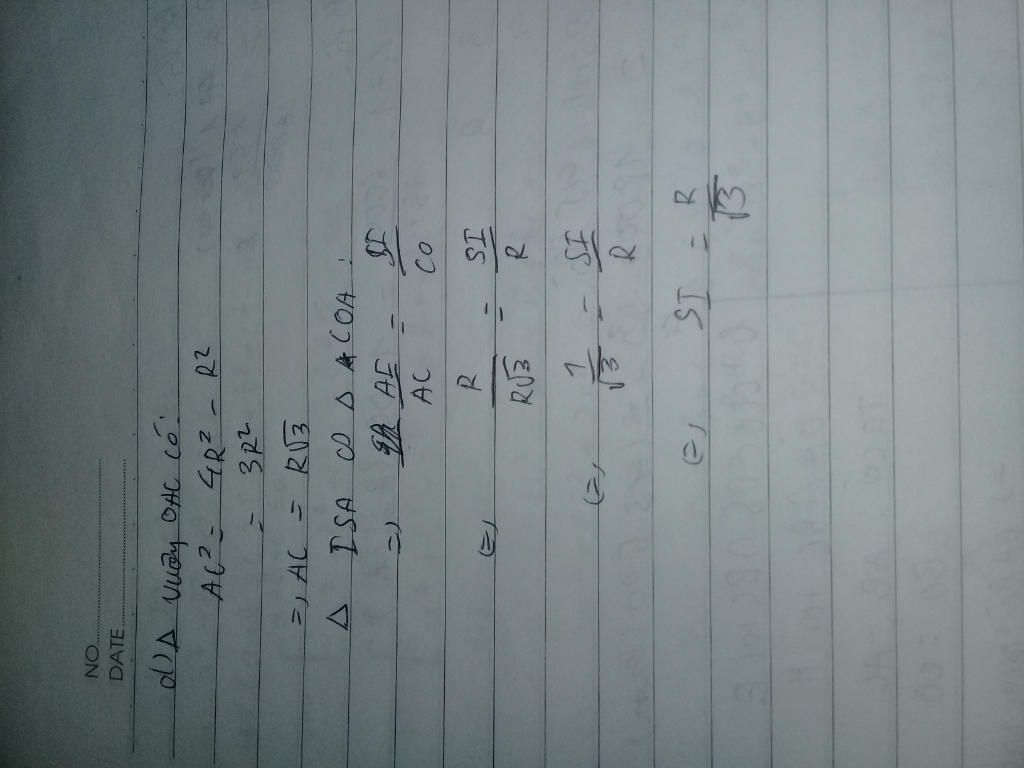 NO.
DATE
d) Δ vuông OAC có:
AC² = 4R² - R²
= 3R²
=> AC = R√3
Δ ISA ∽ Δ COA:
=> AI/AC = SI/CO
<=> R/R√3 = SI/R
<=> 1/√3 = SI/R
<=> SI = R/√3